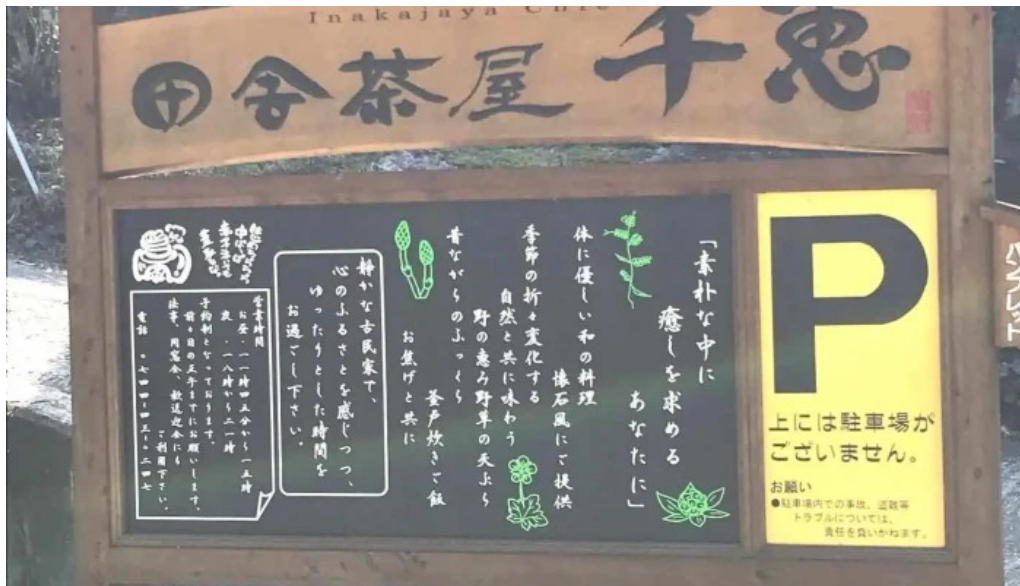 Inakajaya Chie
田舎茶屋 千恵
「素朴な中に
癒しを求める
あなたに」
体に優しい和の料理
懐石風にご提供
季節の折々変化する
自然と共に味わう
野の恵み野草の天ぷら
昔ながらのふっくら
釜戸炊きご飯
お焦げと共に
静かな古民家で、
心のふるさとを感じつつ、
ゆったりとした時間を
お過ごし下さい。
営業時間
お昼・一一時四五分から一五時
夜・一八時から二一時
予約制となっております。
前々日の正午までにお願いします。
法事、同窓会、歓送迎会にも
ご利用下さい。
電話 〇七四四-四三-〇二四七
P
上には駐車場が
ございません。
お願い
●駐車場内での事故、盗難等
トラブルについては、
責任を負いかねます。
パンフレット